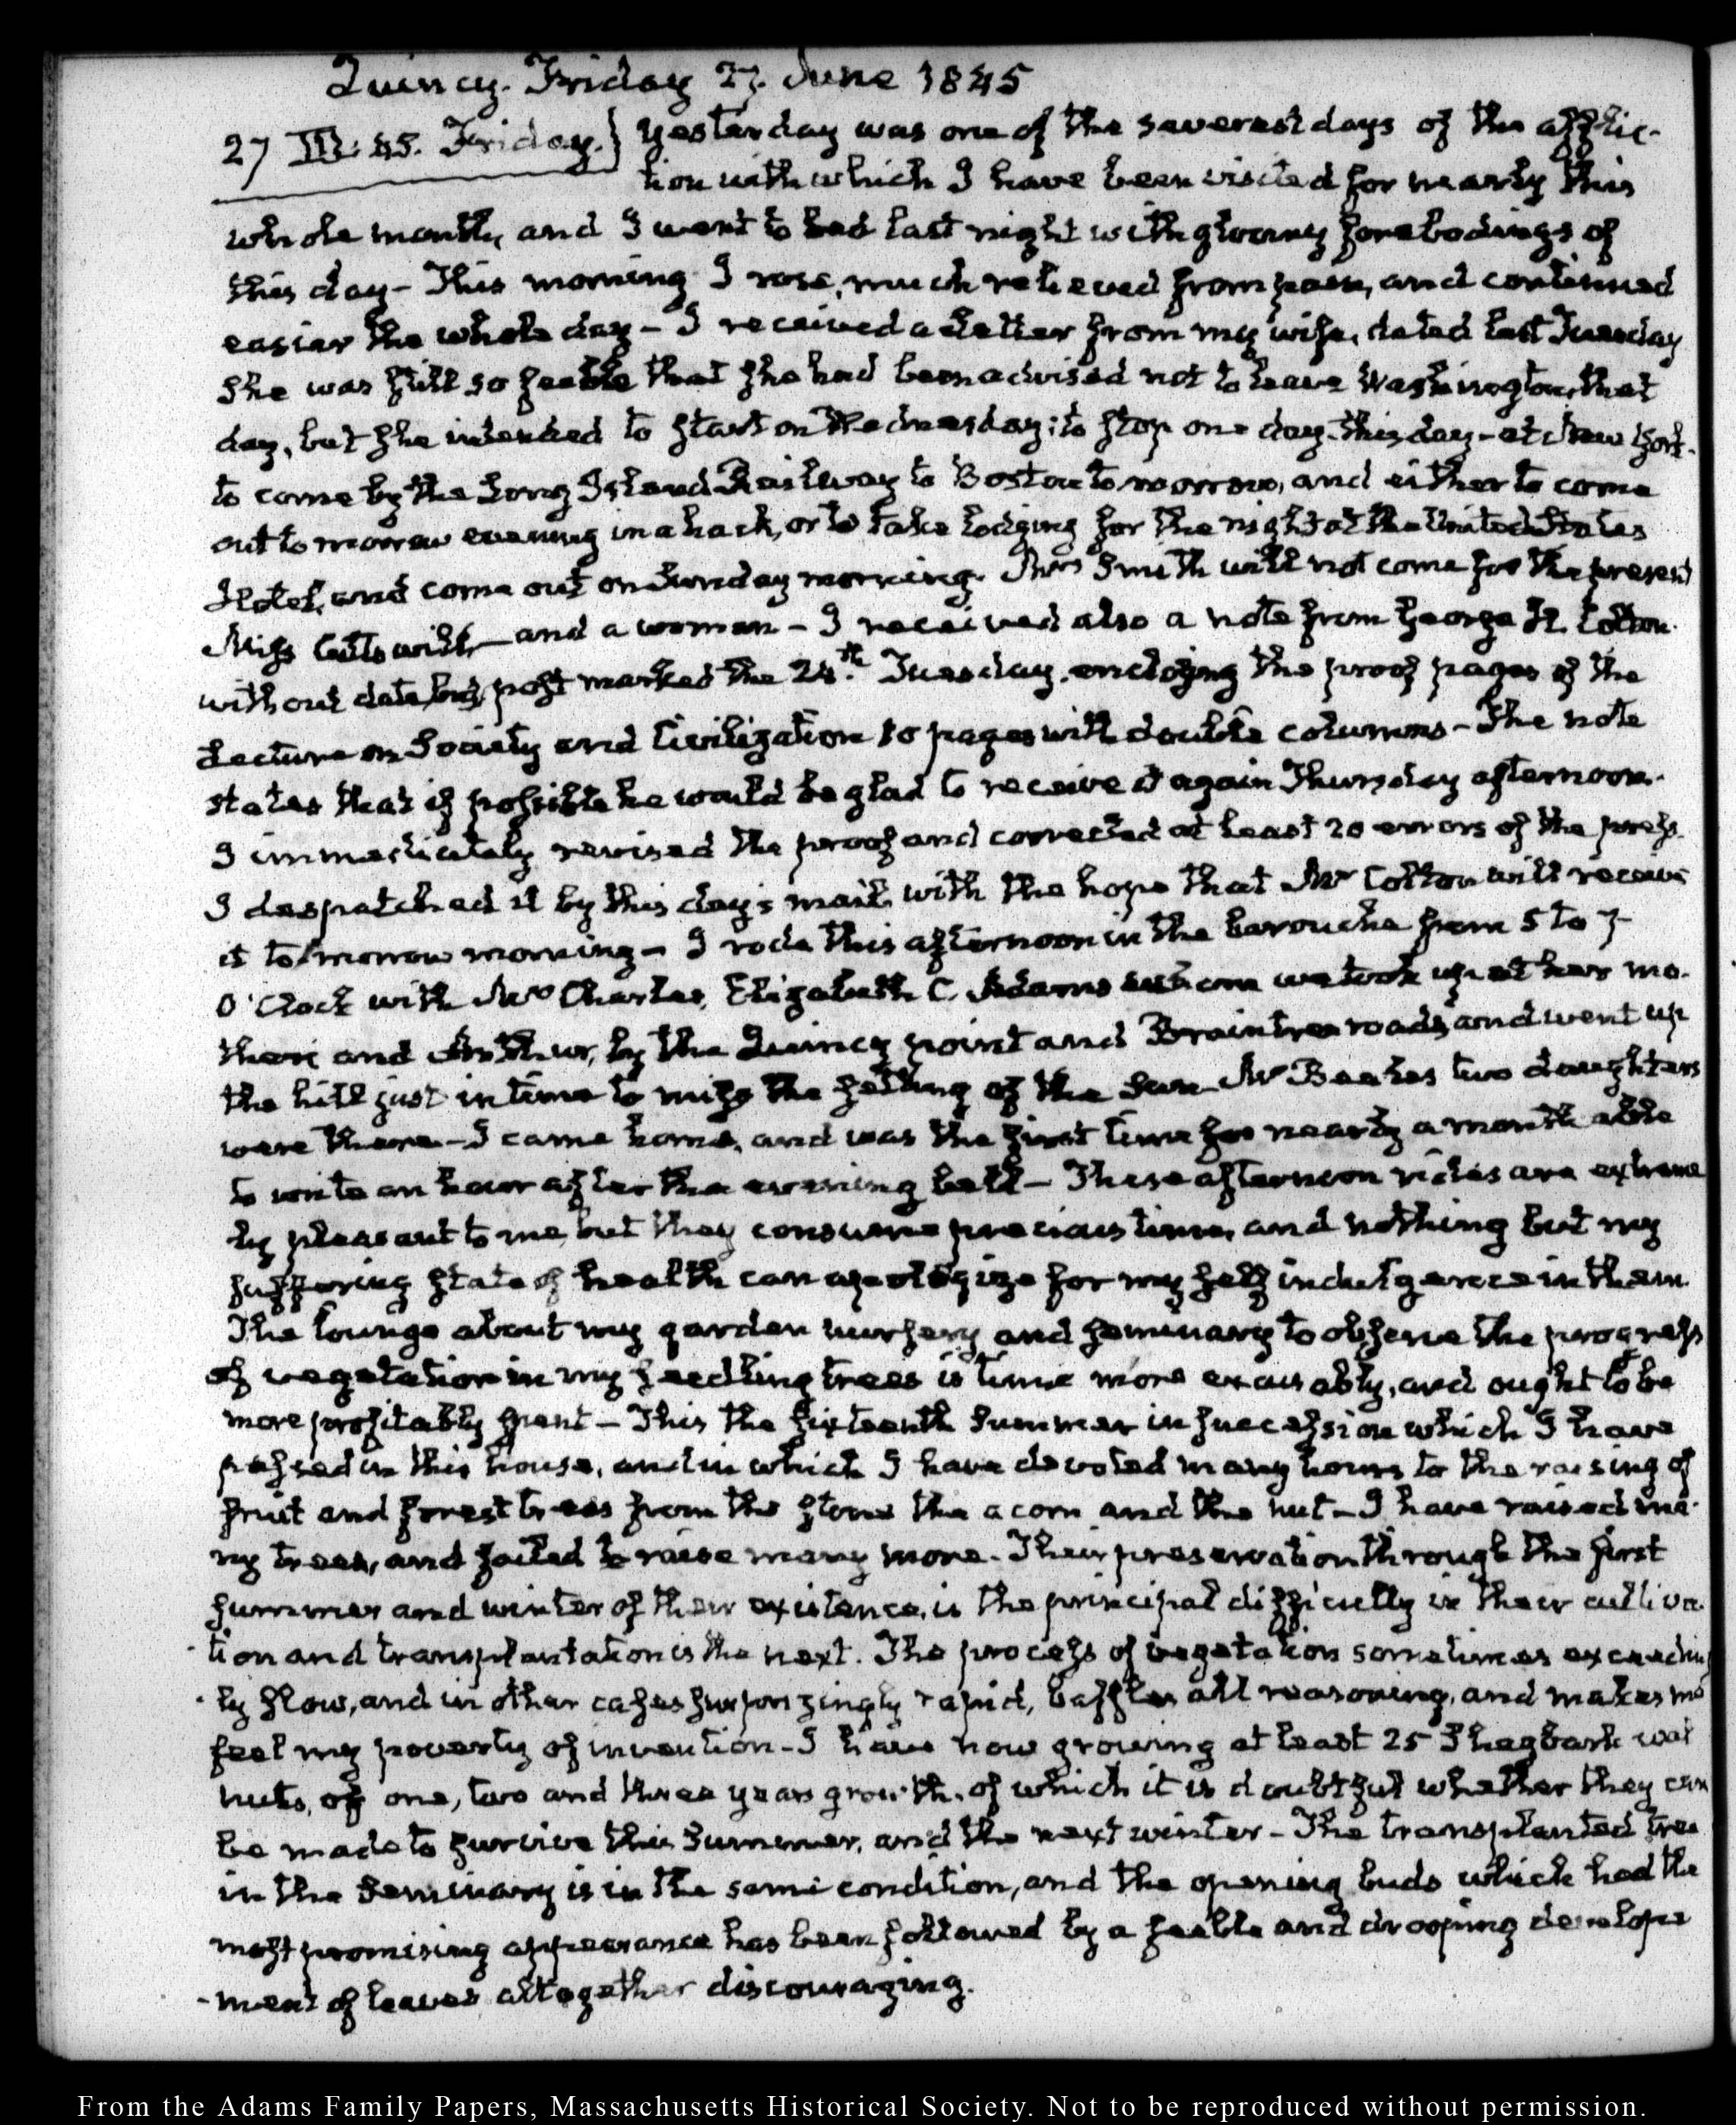 Quincy. Friday 27. June 1845
27 III: 45. Friday.} Yesterday was one of the severest days of the afflic-
tion with which I have been visited for nearly this
whole month, and I went to bed last night with gloomy forebodings of
this day – This morning I rose, much relieved from pain, and continued
easier the whole day – I received a Letter from my wife, dated last Tuesday
She was still so feeble that she had been advised not to leave Washington, that
day, but she intended to start on Wednesday; to stop one day – this day – at New York.
to come by the Long Island Railway to Boston to morrow, and either to come
out to morrow evening in a hack, or to take lodging for the night at the United States
Hotel, and come out on Sunday morning. Mrs Smith will not come for the present
Miss Cutts will – and a woman – I received also a note from George H. Colton.
without date, but post marked the 24th. Tuesday, enclosing the proof pages of the
Lecture on Society and Civilization 10 pages with double columns – The note
states that if possible he would be glad to receive it again Thursday afternoon.
I immediately revised the proof and corrected at least 20 errors of the press.
I despatched it by this day's mail, with the hope that Mr Colton will receive
it to morrow morning – I rode this afternoon in the barouche from 5 to 7
O'Clock with Mrs Charles, Elizabeth C. Adams whom we took up at her mo-
ther's and Arthur, by the Quincy point and Braintree roads and went up
the hill just in time to miss the setting of the Sun – Mr Beales two daughters
were there – I came home, and was the first time for nearly a month able
to write an hour after the evening bell – These afternoon rides are extreme
ly pleasant to me, but they consume precious time, and nothing but my
suffering state of health can apologize for my self indulgence in them.
The lounge about my garden nursery and seminary to observe the progress
of vegetation in my seedling trees is time more excusably, and ought to be
more profitably spent – This the sixteenth Summer in succession which I have
passed in this house, and in which I have devoted many hours to the raising of
fruit and forrest trees from the stone the acorn and the nut – I have raised ma-
ny trees, and failed to raise many more. Their preservation through the first
summer and winter of their existence, is the principal difficulty in their cultiva-
tion and transplantation is the next. The process of vegetation sometimes exceeding
- ly slow, and in other cases surprizingly rapid, baffles all reasoning, and makes me
feel my poverty of invention – I have now growing at least 25 Shagbark wal
nuts, of one, two and three years growth, of which it is doubtful whether they can
be made to survive this Summer, and the next winter – The transplanted tree
in the Seminary is in the same condition, and the opening buds which had the
most promising appearance has been followed by a feeble and drooping develope
- ment of leaves altogether discouraging.
From the Adams Family Papers, Massachusetts Historical Society. Not to be reproduced without permission.